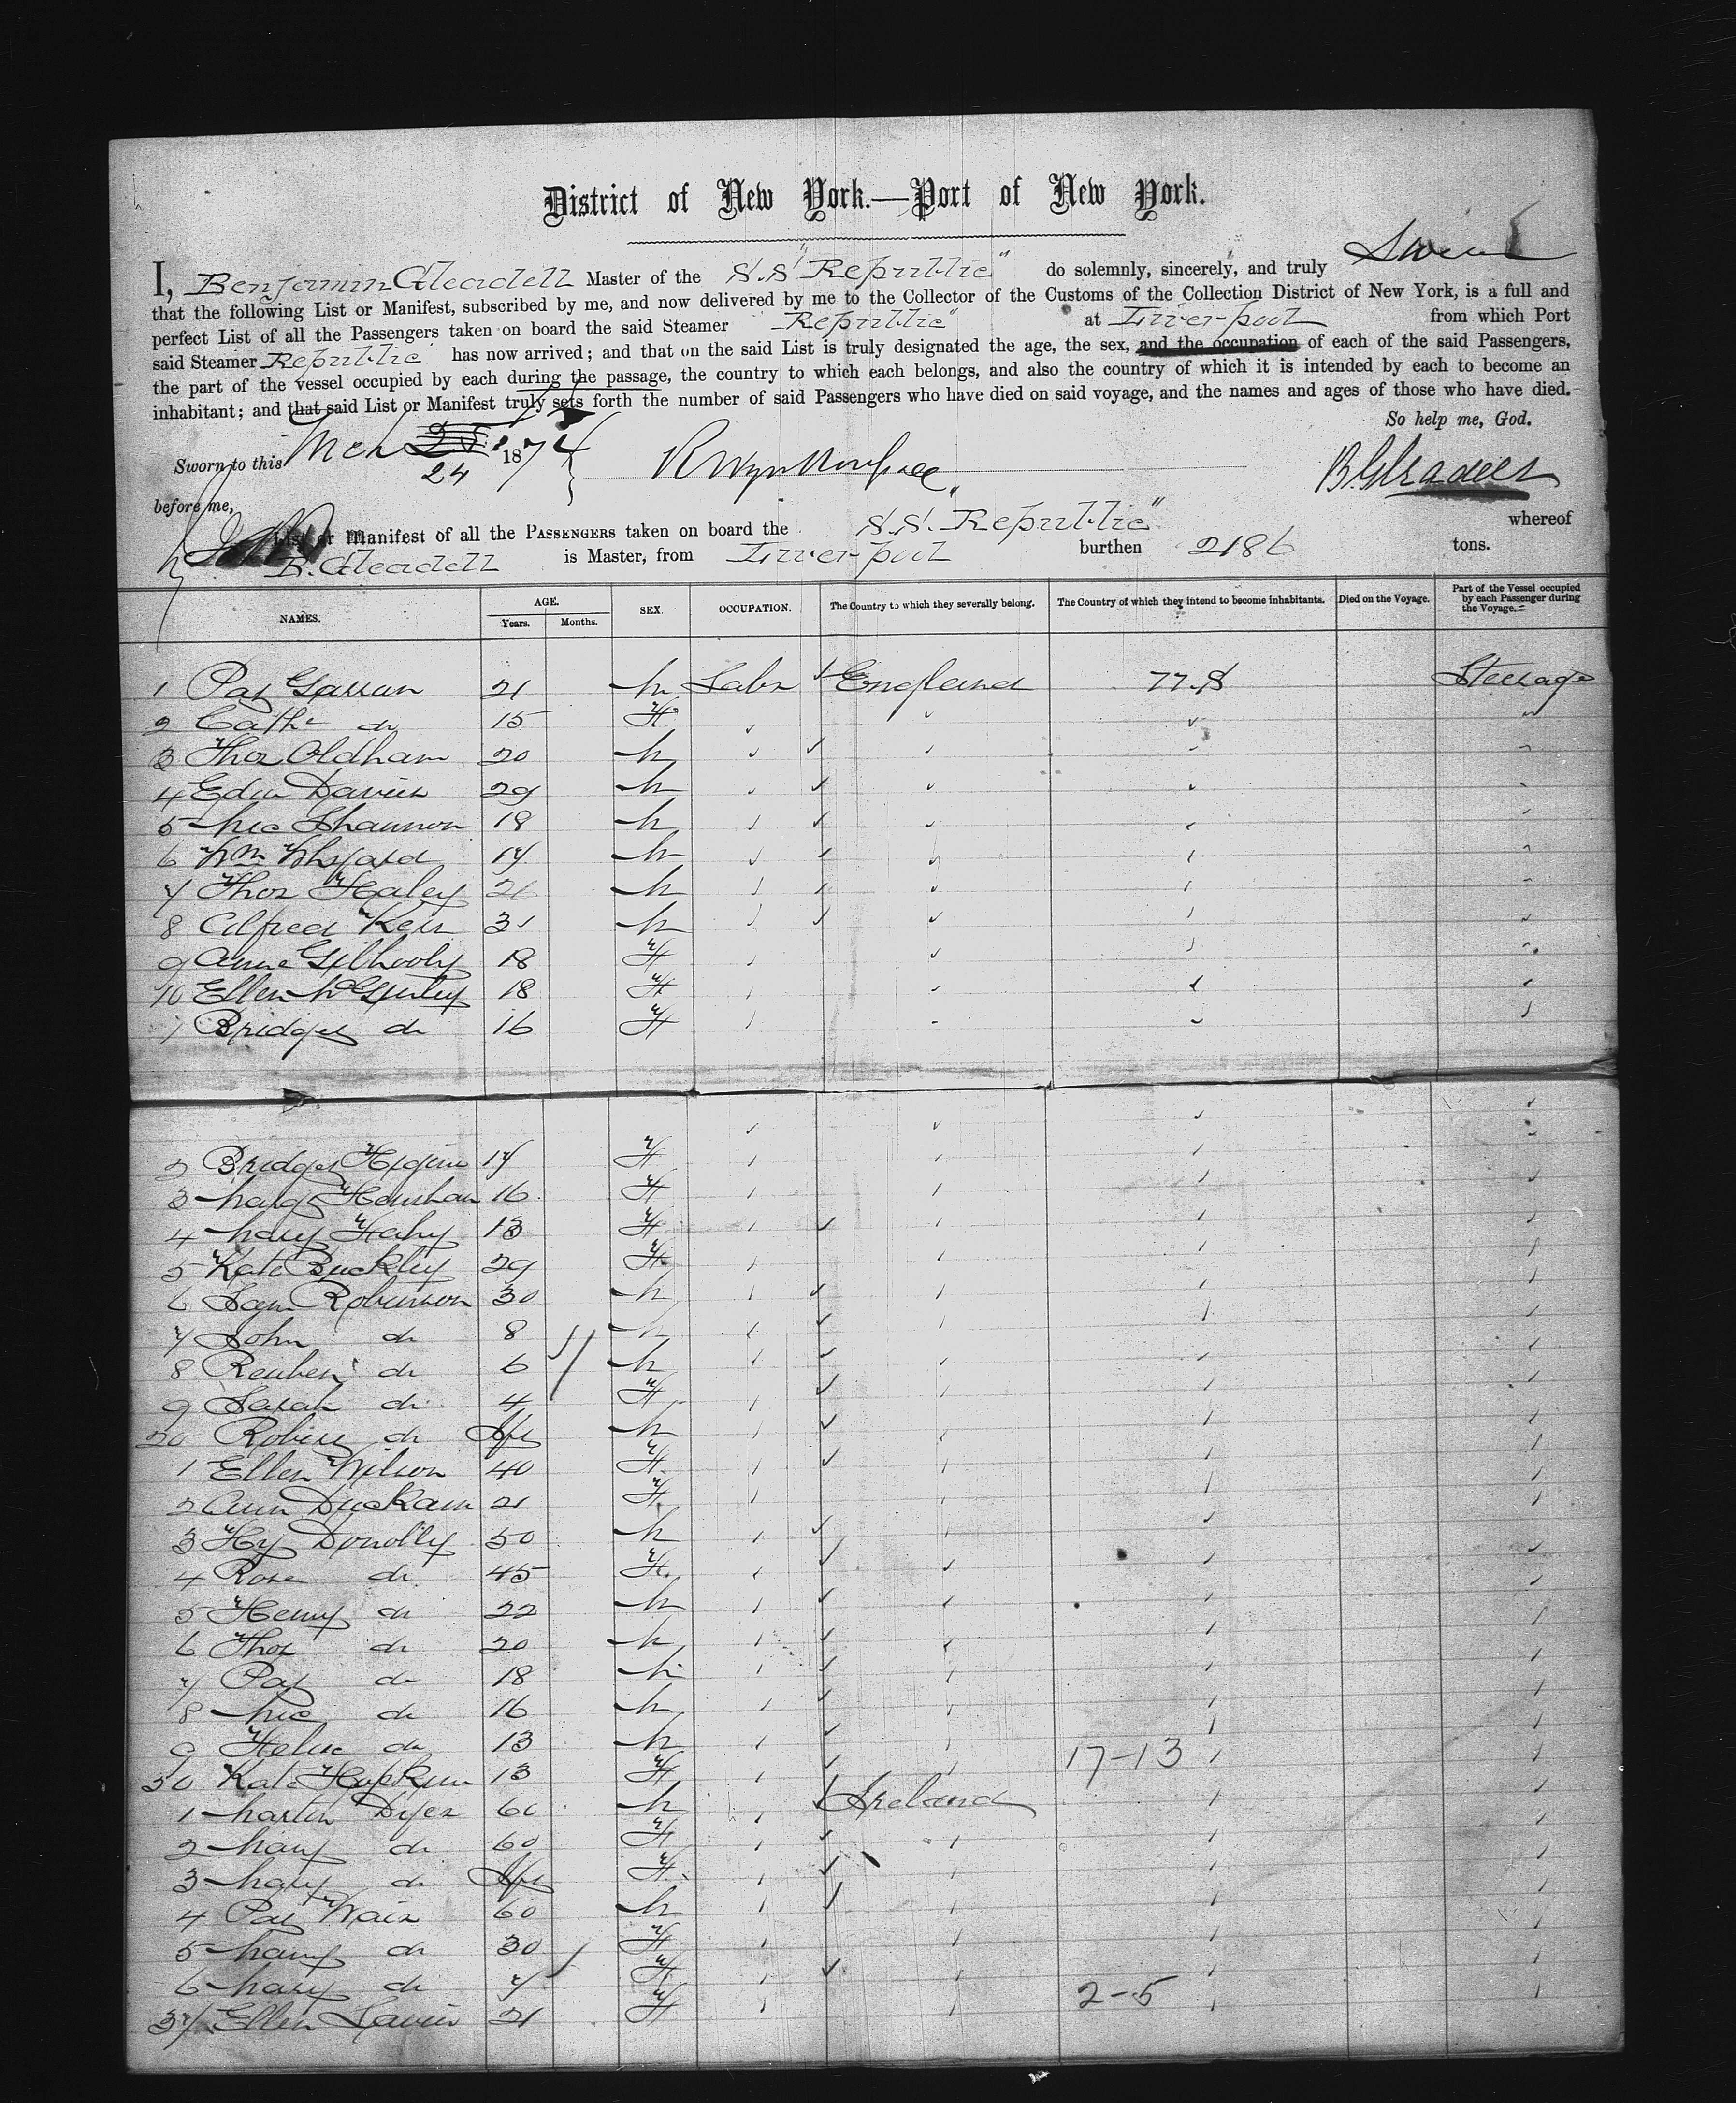 District of New York.—Port of New York.
I, Benjamin Gleadell Master of the S.S "Republic" do solemnly, sincerely, and truly Swear
that the following List or Manifest, subscribed by me, and now delivered by me to the Collector of the Customs of the Collection District of New York, is a full and
perfect List of all the Passengers taken on board the said Steamer "Republic" at Liverpool from which Port
said Steamer Republic has now arrived; and that on the said List is truly designated the age, the sex, and the occupation of each of the said Passengers,
the part of the vessel occupied by each during the passage, the country to which each belongs, and also the country of which it is intended by each to become an
inhabitant; and that said List or Manifest truly sets forth the number of said Passengers who have died on said voyage, and the names and ages of those who have died.
So help me, God.
Sworn to this Mch 25 24 1874
B. Gleadell
before me,
List or Manifest of all the PASSENGERS taken on board the S.S. "Republic" whereof
B. Gleadell is Master, from Liverpool burthen 2186 tons.
NAMES. AGE. Years. Months. SEX. OCCUPATION. The Country to which they severally belong. The Country of which they intend to become inhabitants. Died on the Voyage. Part of the Vessel occupied by each Passenger during the Voyage.
1 Pat 21 M Labr England U.S Steerage
2 Cath do 15 F
3 Thos Oldham 20 M
4 Edw Davies 29 M
5 Mic Shannon 18 M
6 Wm 17 M
7 Thos Healey 21 M
8 Alfred Keir 31 M
9 Anne Gilhooly 18 F
10 Ellen McGinley 18 F
1 Bridget do 16 F
2 Bridget Higins 17 F
3 Margt 16 F
4 Mary 13 F
5 Kate Buckley 29 F
6 Sam Robinson 30 M
7 John do 8 M
8 Reuben do 6 M
9 Sarah do 4 F
20 Robert do Inft M
1 Ellen Wilson 40 F
2 Ann Duckam 21 F
3 Hy Donolly 50 M
4 Rose do 45 F
5 Henry do 22 M
6 Thos do 20 M
7 Pat do 18 M
8 Mic do 16 M
9 do 13 M
30 Kate Hopkins 13 F 17-13
1 Martin Dyer 60 M Ireland
2 Mary do 60 F
3 Mary do Inft F
4 Pat 60 M
5 Mary do 30 F
6 Mary do 7 F
37 Ellen 21 F 2-5